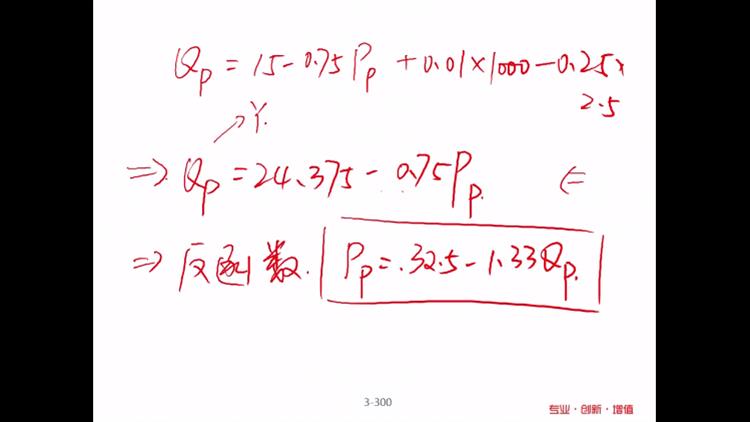 Qp = 15 - 0.75Pp + 0.01×1000 - 0.25×
2.5
↗ Y.
⇒ Qp = 24.375 - 0.75Pp. ⇐
⇒ 反函数. Pp = .32.5 - 1.33Qp.
3-300
专业·创新·增值